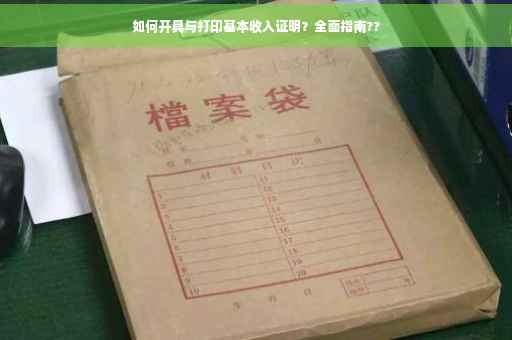 如何开具与打印基本收入证明？全面指南??
檔案袋
材料目次
1
2
3
4
5
6
7
8
9
10
11
12
13
14
15
16
17
18
19
20
年月日